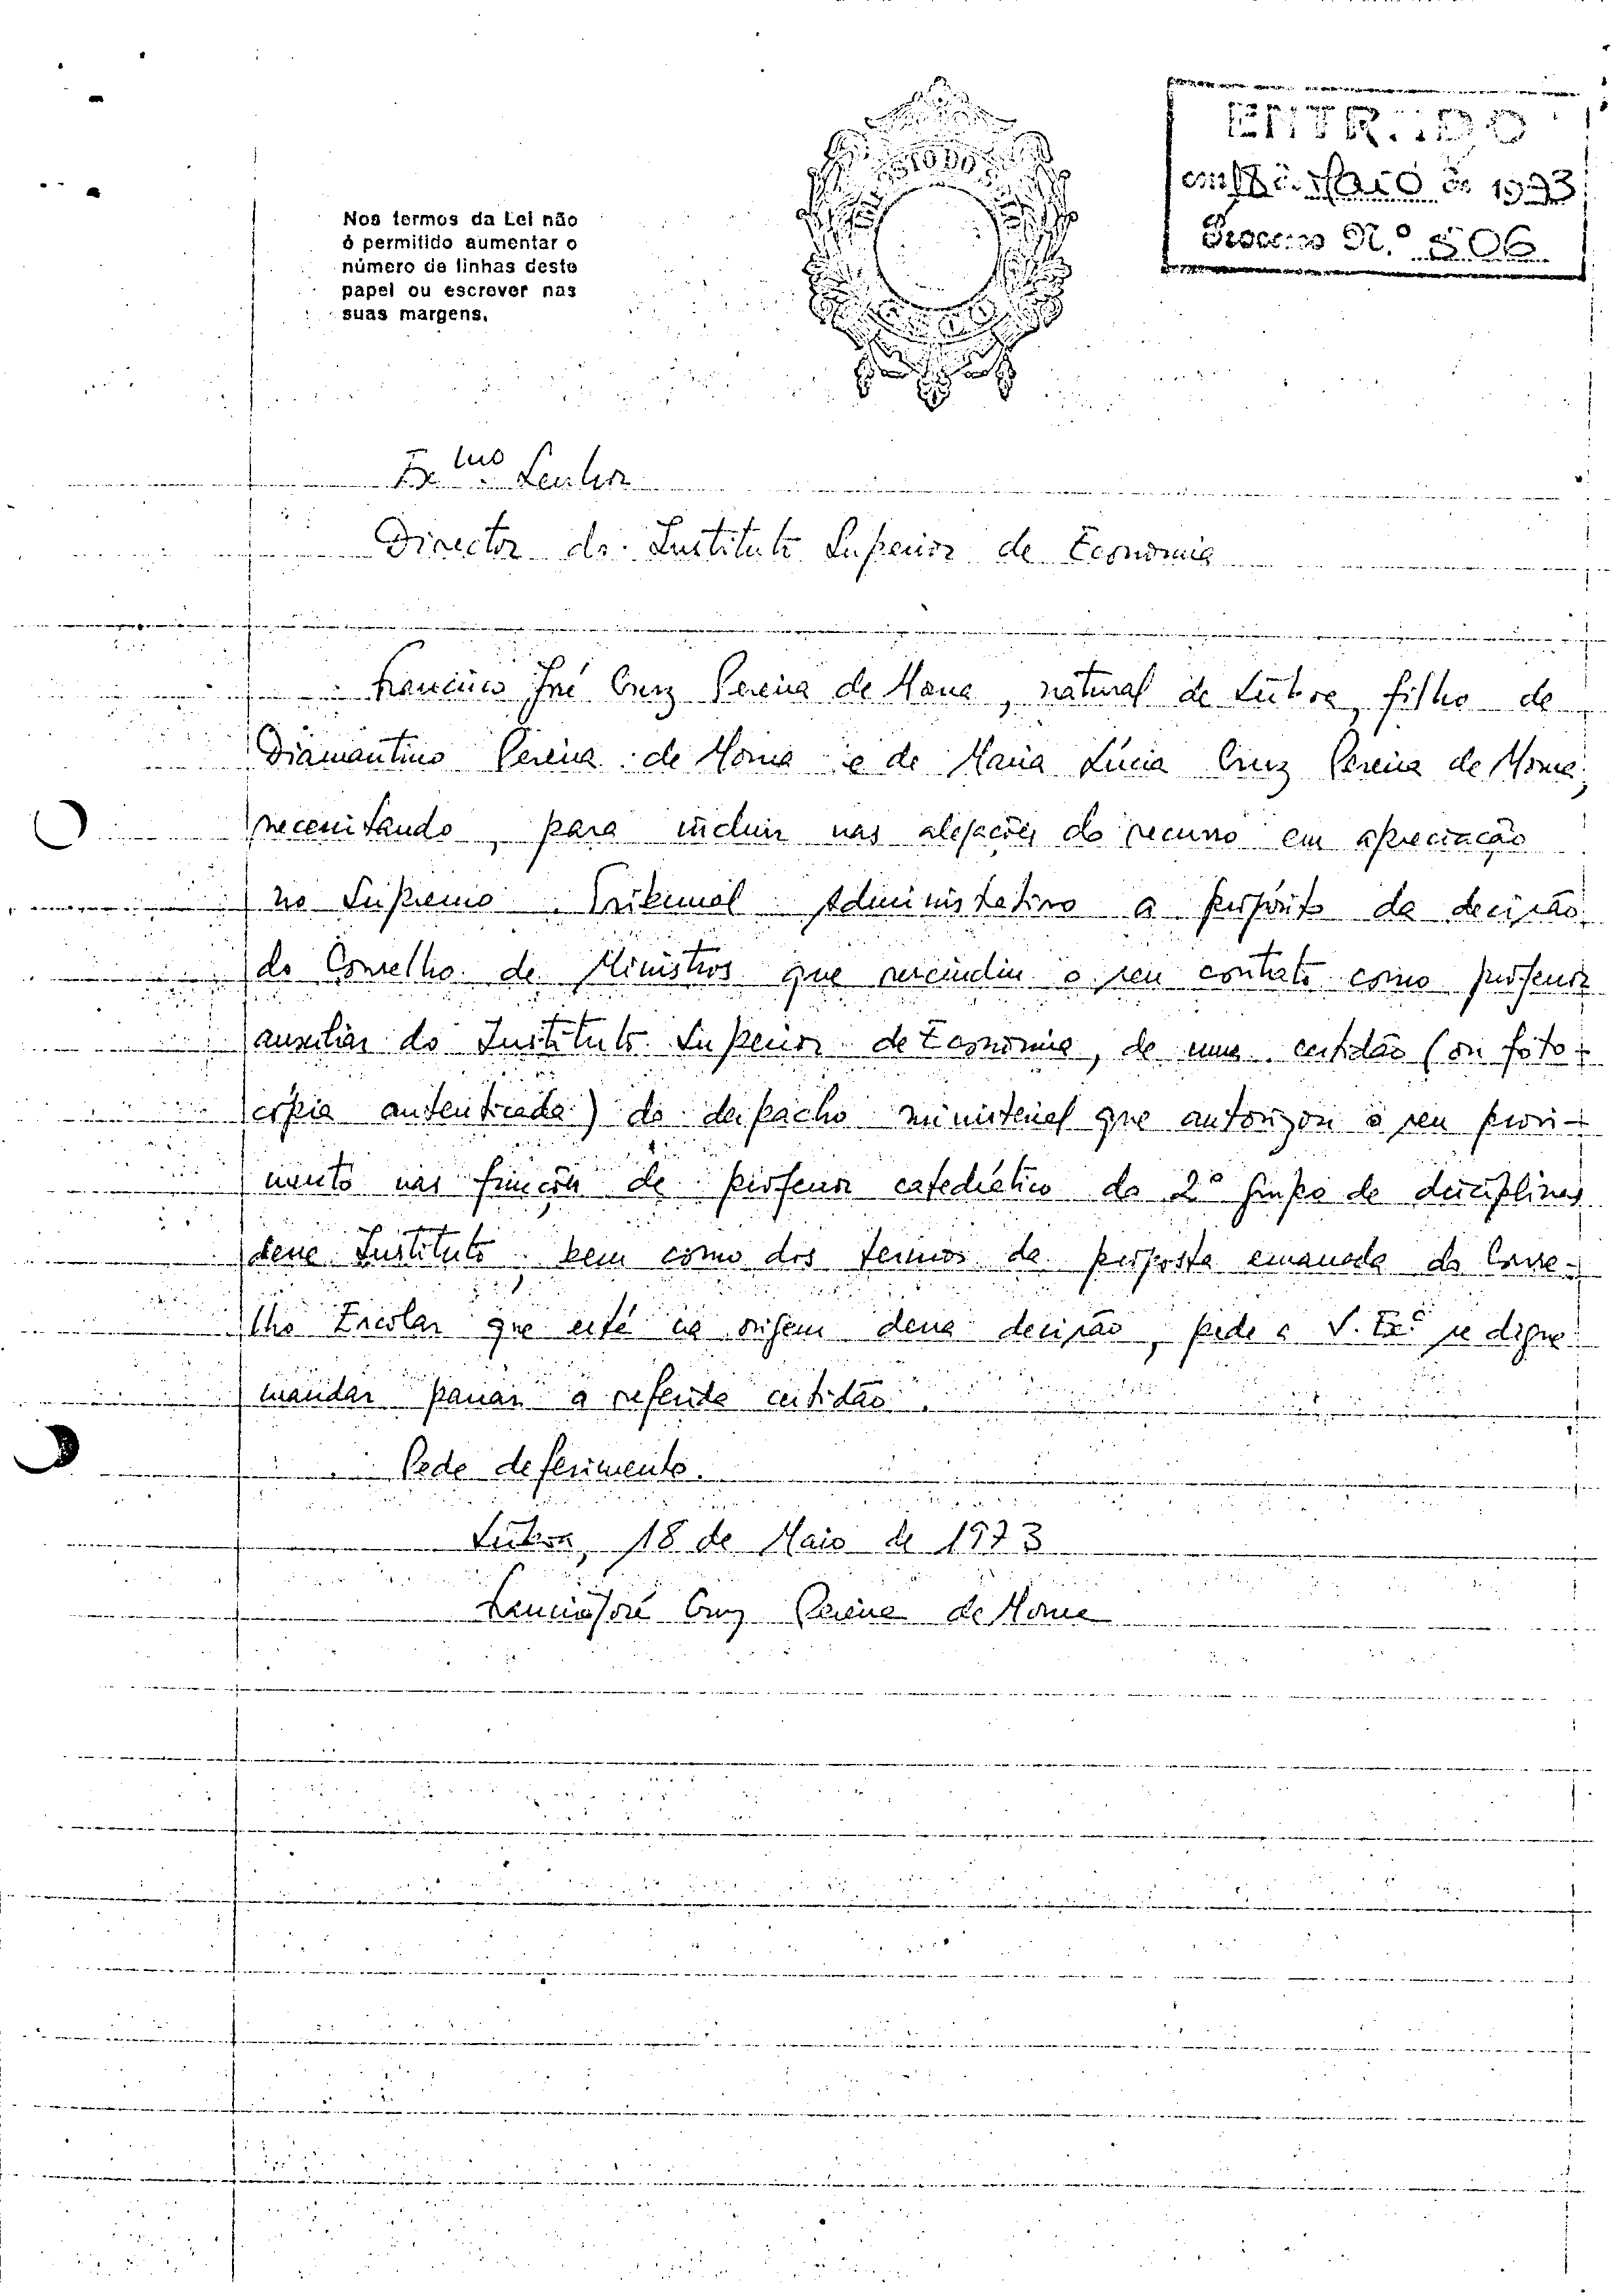 Nos termos da Lei não
é permitido aumentar o
número de linhas deste
papel ou escrever nas
suas margens.
ENTRADO
em 18 de Maio de 1973
Processo N.º 506
Exmo. Senhor
Director do Instituto Superior de Economia
Francisco José Cruz Pereira de Moura, natural de Lisboa, filho de
Diamantino Pereira de Moura e de Maria Lúcia Cruz Pereira de Moura,
necessitando, para incluir nas alegações do recurso em apreciação
no Supremo Tribunal Administrativo a propósito da decisão
do Conselho de Ministros que rescindiu o seu contrato como professor
auxiliar do Instituto Superior de Economia, de uma certidão (ou foto-
cópia autenticada) do despacho ministerial que autorizou o seu provi-
mento nas funções de professor catedrático do 2º grupo de disciplinas
desse Instituto bem como dos termos da proposta emanada do Conse-
lho Escolar que está na origem dessa decisão, pede a V. Exª se digne
mandar passar a referida certidão.
Pede deferimento.
Lisboa, 18 de Maio de 1973
Francisco José Cruz Pereira de Moura